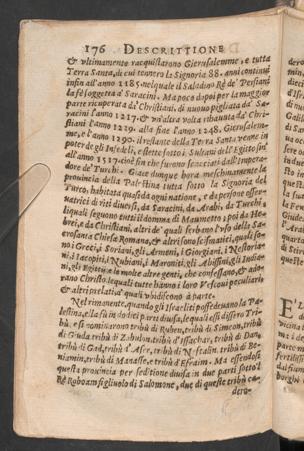 176 DESCRITTIONE
& vltimamente racquistarono Gierusalemme, e tutta
Terra Santa, di cui tennero la Signoria 88. anni continui
infin all'anno 1185. nelquale il Saladino Rè de' Persiani
la fè soggetta a' Saracini. Ma poco dopoi per la maggior
parte ricuperata da' Christiani, di nuouo pigliata da' Sa-
racini l'anno 1217. & vn'altra volta rihauuta da' Chri-
stiani l'anno 1229. alla fine l'anno 1248. Gierusalem-
me, e l'anno 1290. il restante della Terra Santa venne in
poter degli Infedeli, e stette sotto i Sultani dell'Egitto fin'
all'anno 1517. cioè fin che furono scacciati dall'Impera-
dore de' Turchi. Giace dunque hora meschinamente la
prouincia della Palestina tutta sotto la Signoria del
Turco, habitata quasi da ogni natione, e da persone osser-
uatrici di riti diuersi, da Saracini, da Arabi, da Turchi,
liquali seguono tutti il domma di Maumetto; poi da He-
brei, e da Christiani, altri de' quali serbano l'vso della Sa-
crosanta Chiesa Romana, & altri sono scismatici, quali so-
no i Greci, i Soriani, gli Armeni, i Giorgiani, i Nestoria-
ni, i Iacopiti, i Nubiani, i Maroniti, gli Abissini, gli India-
ni, gli Egittij, e le molte altre genti, che confessano, & ado-
rano Christo, lequali tutte hanno i loro Vescoui peculiari,
& altri prelati, a' quali vbidiscono à parte.
Nel rimanente, quando gli Israeliti possedeuano la Pa-
lestina, ella fù in dodici parti diuisa, le quali essi dissero Tri-
bù, e si nominarono tribù di Ruben, tribù di Simeon, tribù
di Giuda, tribù di Zabulon, tribù d'Issachar, tribù di Dan,
tribù di Gad, tribù d'Aser, tribù di Neftalin, tribù di Be-
niamin, tribù di Manasse, e tribù d'Efraim. Ma essendosi
questa prouincia per seditione diuisa in due parti sotto 'l
Rè Roboam figliuolo di Salomone, due di queste tribù ca-
dero-